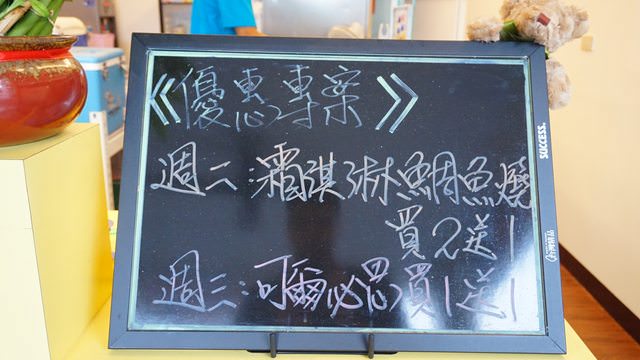 《優惠專案》
週二:霜淇淋鯛魚燒
買2送1
週三:可爾必思買1送1
SUCCESS.